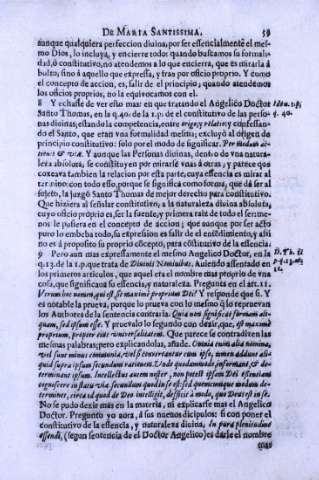 DE MARIA SANTISSIMA. 59
aunque qualquiera perfeccion divina, por ser essencialmente el mes-
mo Dios, lo incluya, y encierre todo: quando buscamos su formali-
dad, ò constitutivo, no atendemos a lo que encierra, que es mirarla à
bulto, sino à aquello que expressa, y tras por oficio proprio. Y como
el concepto de accion, es, salir de el principio; quando atendemos
los oficios proprios, no la equivocamos con el.
8 Y echasse de ver esto mas: en que tratando el Angelico Doctor
Santo Thomas, en la q.40. de la 1.p. de el constitutivo de las perso-
nas divinas, estando la competencia, entre origo, y relatio; y confessan-
do el Santo, que eran una formalidad mesma; excluyò al origen de
principio constitutivo: solo por el modo de significar.
Y aunque las Personas divinas, dentro de una natura-
leza absoluta, se constituyen por mirarse unas à otras; y parece que
coxeava tambien la relacion por esta parte, cuya essencia es mirar al
termino: con todo esso, porque se significa como forma, que dà ser al
sujeto, la juzgò Santo Thomas de mejor derecho para constitutivo.
Que hiziera al señalar constitutivo, a la naturaleza divina absoluta,
cuyo oficio proprio es, ser la fuente, y primera raiz de todo el ser: me-
nos le pusiera en el concepto de accion; que aunque por ser acto
puro lo embeba todo, su expression es salir de el entendimiento, y assi
no es à proposito su proprio cõcepto, para cõstitutivo de la essencia.
9 Pero aun mas expressamente el mesmo Angelico Doctor, en la
q.13. de la 1.p. que trata de Divinis Nominibus. Aviendo assentado en
los primeros articulos, que aquel era el nombre mas proprio de una
cosa, que significava su essencia, y naturaleza. Pregunta en el art. 11.
Utrum hoc nomen, qui est, sit maxime proprium Dei? Y responde que si. Y
es notable la prueva, porque lo prueva con lo mesmo q̃ lo reprueva
los Authores de la sentencia contraria. Quia non significat formam ali-
quam, sed ipsum esse. Y pruevalo lo segundo con dezir, que, est maxime
proprium, propter eius universalitatem. Que parece se contradizen las
mesmas palabras; pero explicandolas, añade. Omnia enim alia nomina,
vel sunt minus communia, vel si convertantur cum ipso, tamen addunt ali-
quid supra ipsum secundum rationem. Unde quodammodo informant, & de-
terminant ipsum. Intellectus autem noster, non potest ipsam Dei essentiam
cognoscere in statu viæ: secundum quod in se est: sed quemcumque modum de-
terminet, circa id quod de Deo intelligit, deficit à modo, quo Deus est in se.
No se pudo dezir mas en la materia, ni explicarse mas el Angelico
Doctor. Pregunto yo aora, à sus nuevos dicipulos: si con poner el
constitutivo de la essencia, y naturaleza divina, In pura plenitudine
essendi, (segun sentencia de el Doctor Angelico) es darle el nombre
mas
q. 40.